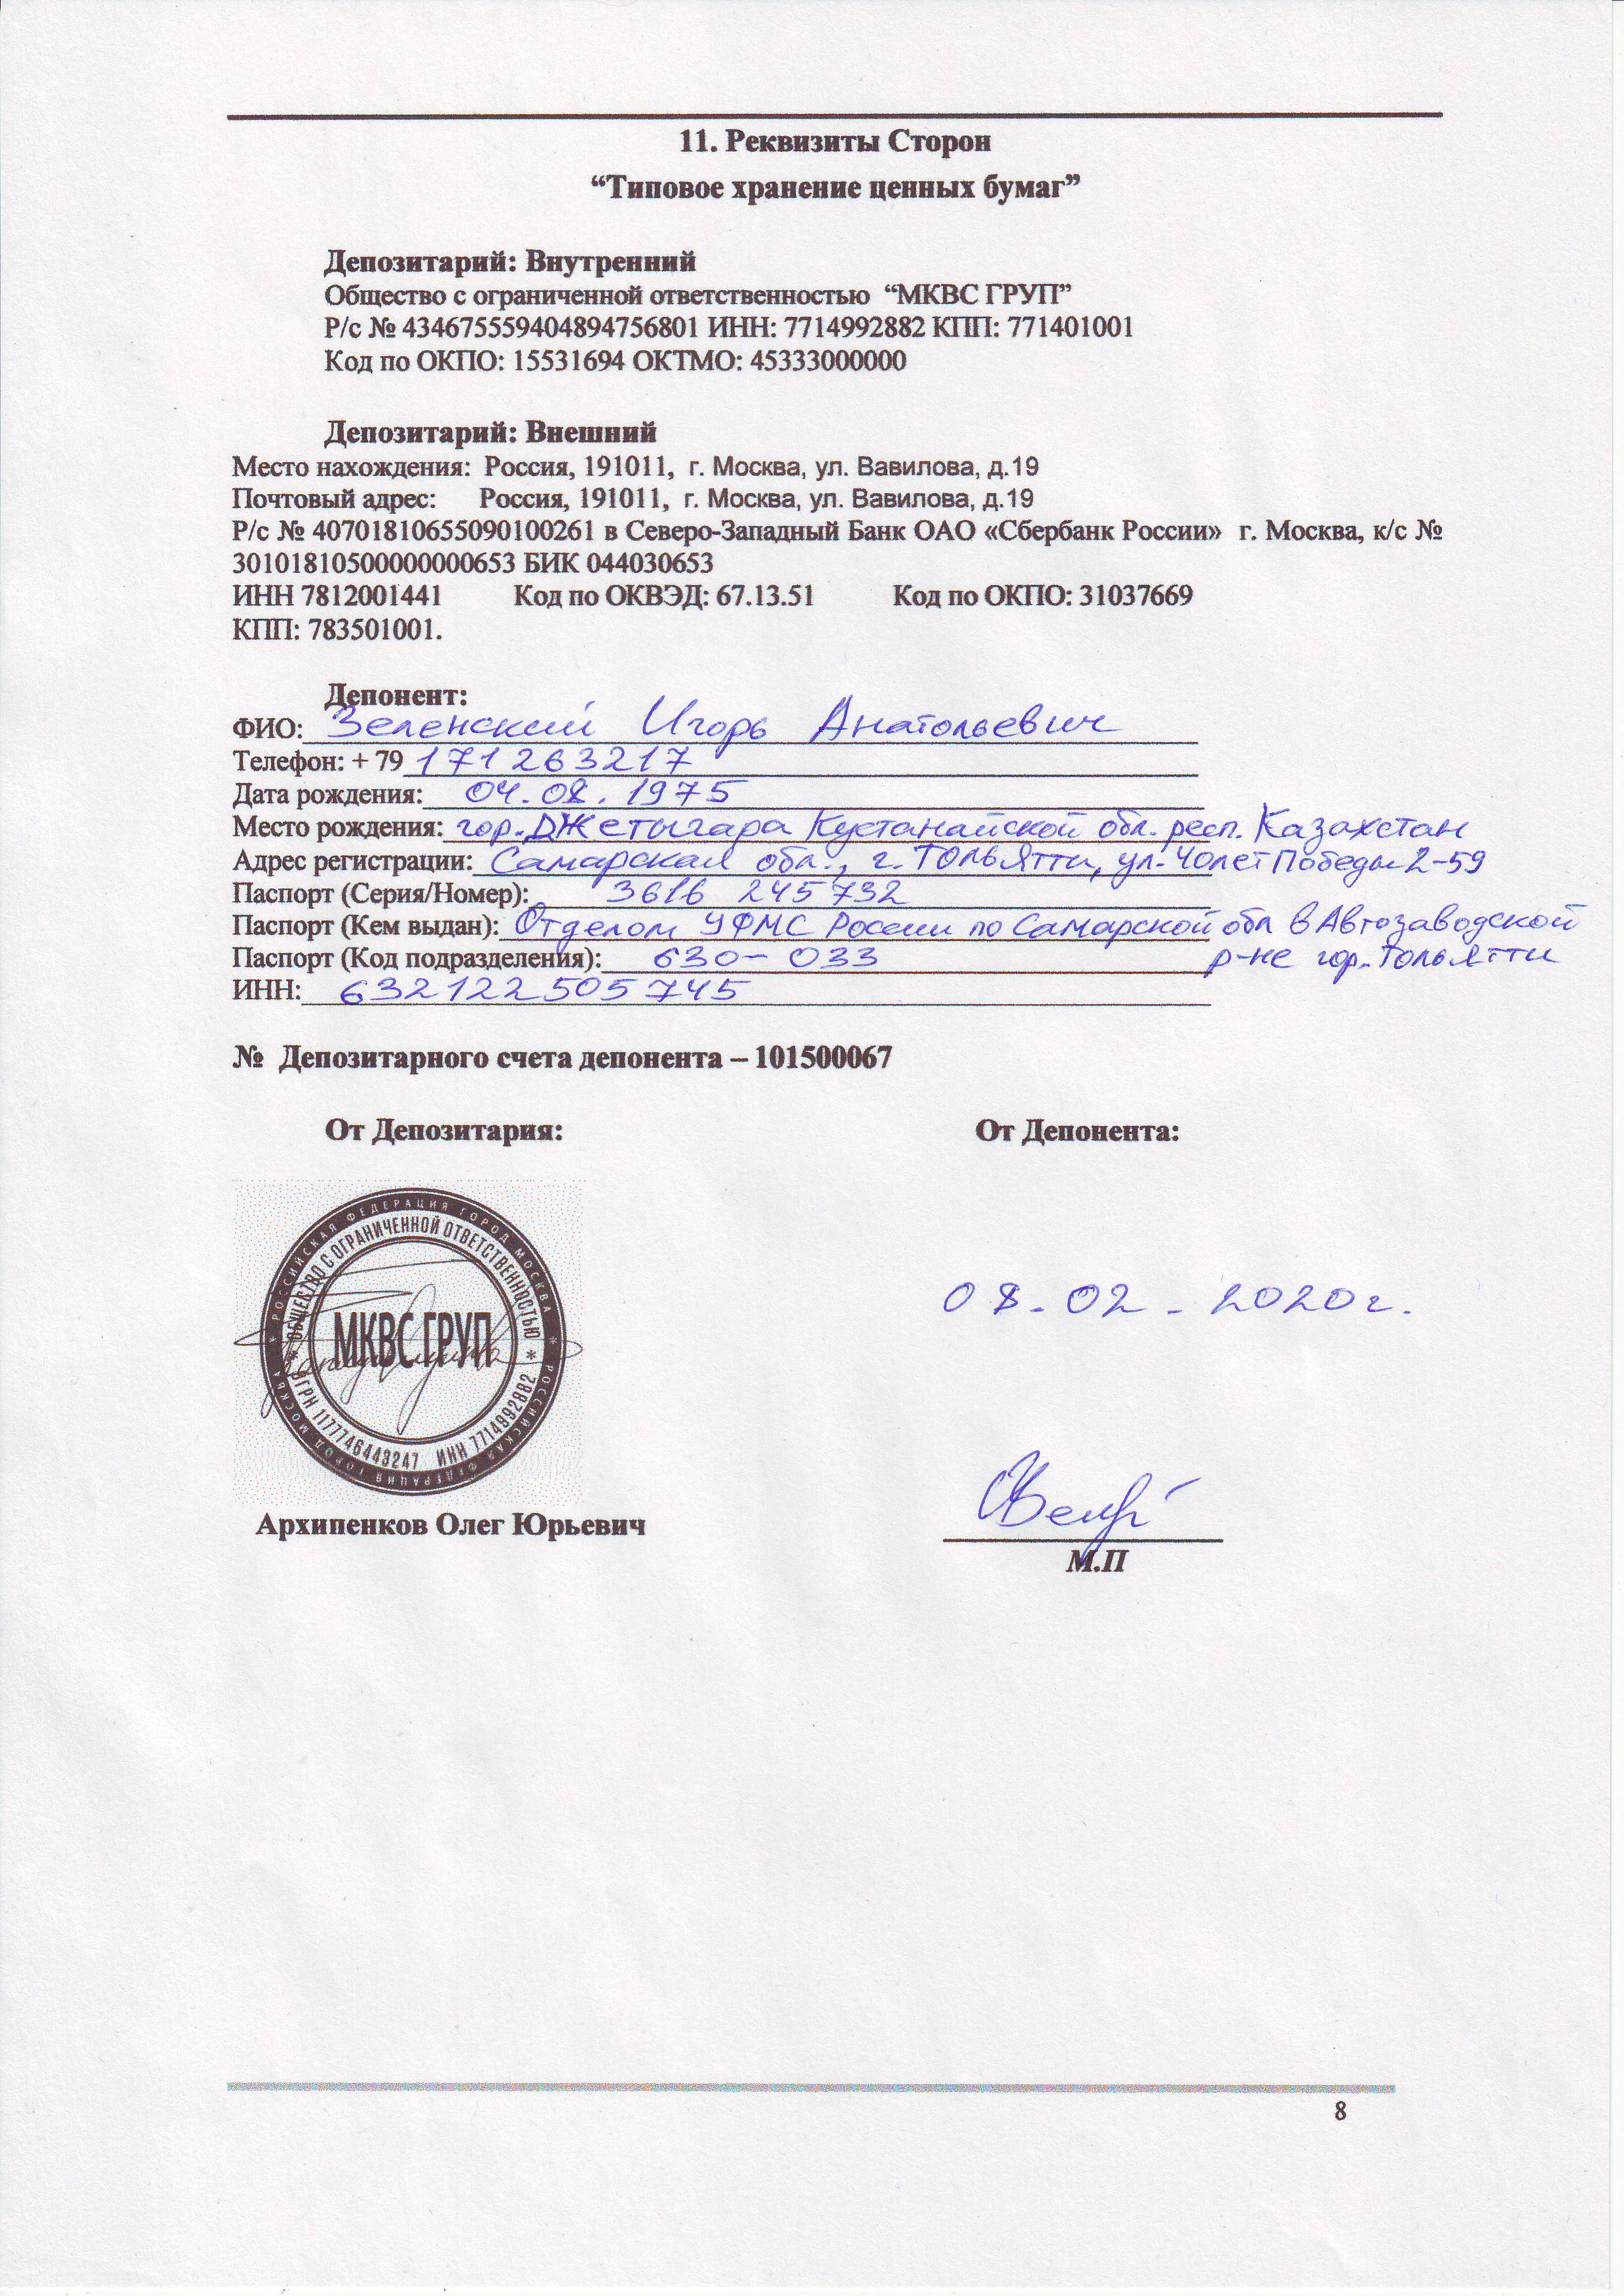 11. Реквизиты Сторон
“Типовое хранение ценных бумаг”
Депозитарий: Внутренний
Общество с ограниченной ответственностью “МКВС ГРУП”
Р/с № 43467555940489475​6801 ИНН: 7714992882 КПП: 771401001
Код по ОКПО: 15531694 ОКТМО: 45333000000
Депозитарий: Внешний
Место нахождения: Россия, 191011, г. Москва, ул. Вавилова, д.19
Почтовый адрес: Россия, 191011, г. Москва, ул. Вавилова, д.19
Р/с № 40701810655090100261 в Северо-Западный Банк ОАО «Сбербанк России» г. Москва, к/с №
30101810500000000653 БИК 044030653
ИНН 7812001441 Код по ОКВЭД: 67.13.51 Код по ОКПО: 31037669
КПП: 783501001.
Депонент:
ФИО: Зеленский Игорь Анатольевич
Телефон: + 79 171263217
Дата рождения: 04.08.1975
Место рождения: гор. Джетыгара Кустанайской обл. респ. Казахстан
Адрес регистрации: Самарская обл., г. Тольятти, ул. 40 лет Победы 2-59
Паспорт (Серия/Номер): 3616 245732
Паспорт (Кем выдан): Отделом УФМС России по Самарской обл в Автозаводской
Паспорт (Код подразделения): 630-033 р-не гор. Тольятти
ИНН: 632122505745
№ Депозитарного счета депонента – 101500067
От Депозитария: От Депонента:
РОССИЙСКАЯ ФЕДЕРАЦИЯ ГОРОД МОСКВА * РОССИЙСКАЯ ФЕДЕРАЦИЯ ГОРОД МОСКВА *
ОБЩЕСТВО С ОГРАНИЧЕННОЙ ОТВЕТСТВЕННОСТЬЮ
МКВС ГРУП
* ОГРН 1177746443247 ИНН 7714992882 *
08.02.2020г.
Архипенков Олег Юрьевич
М.П
8